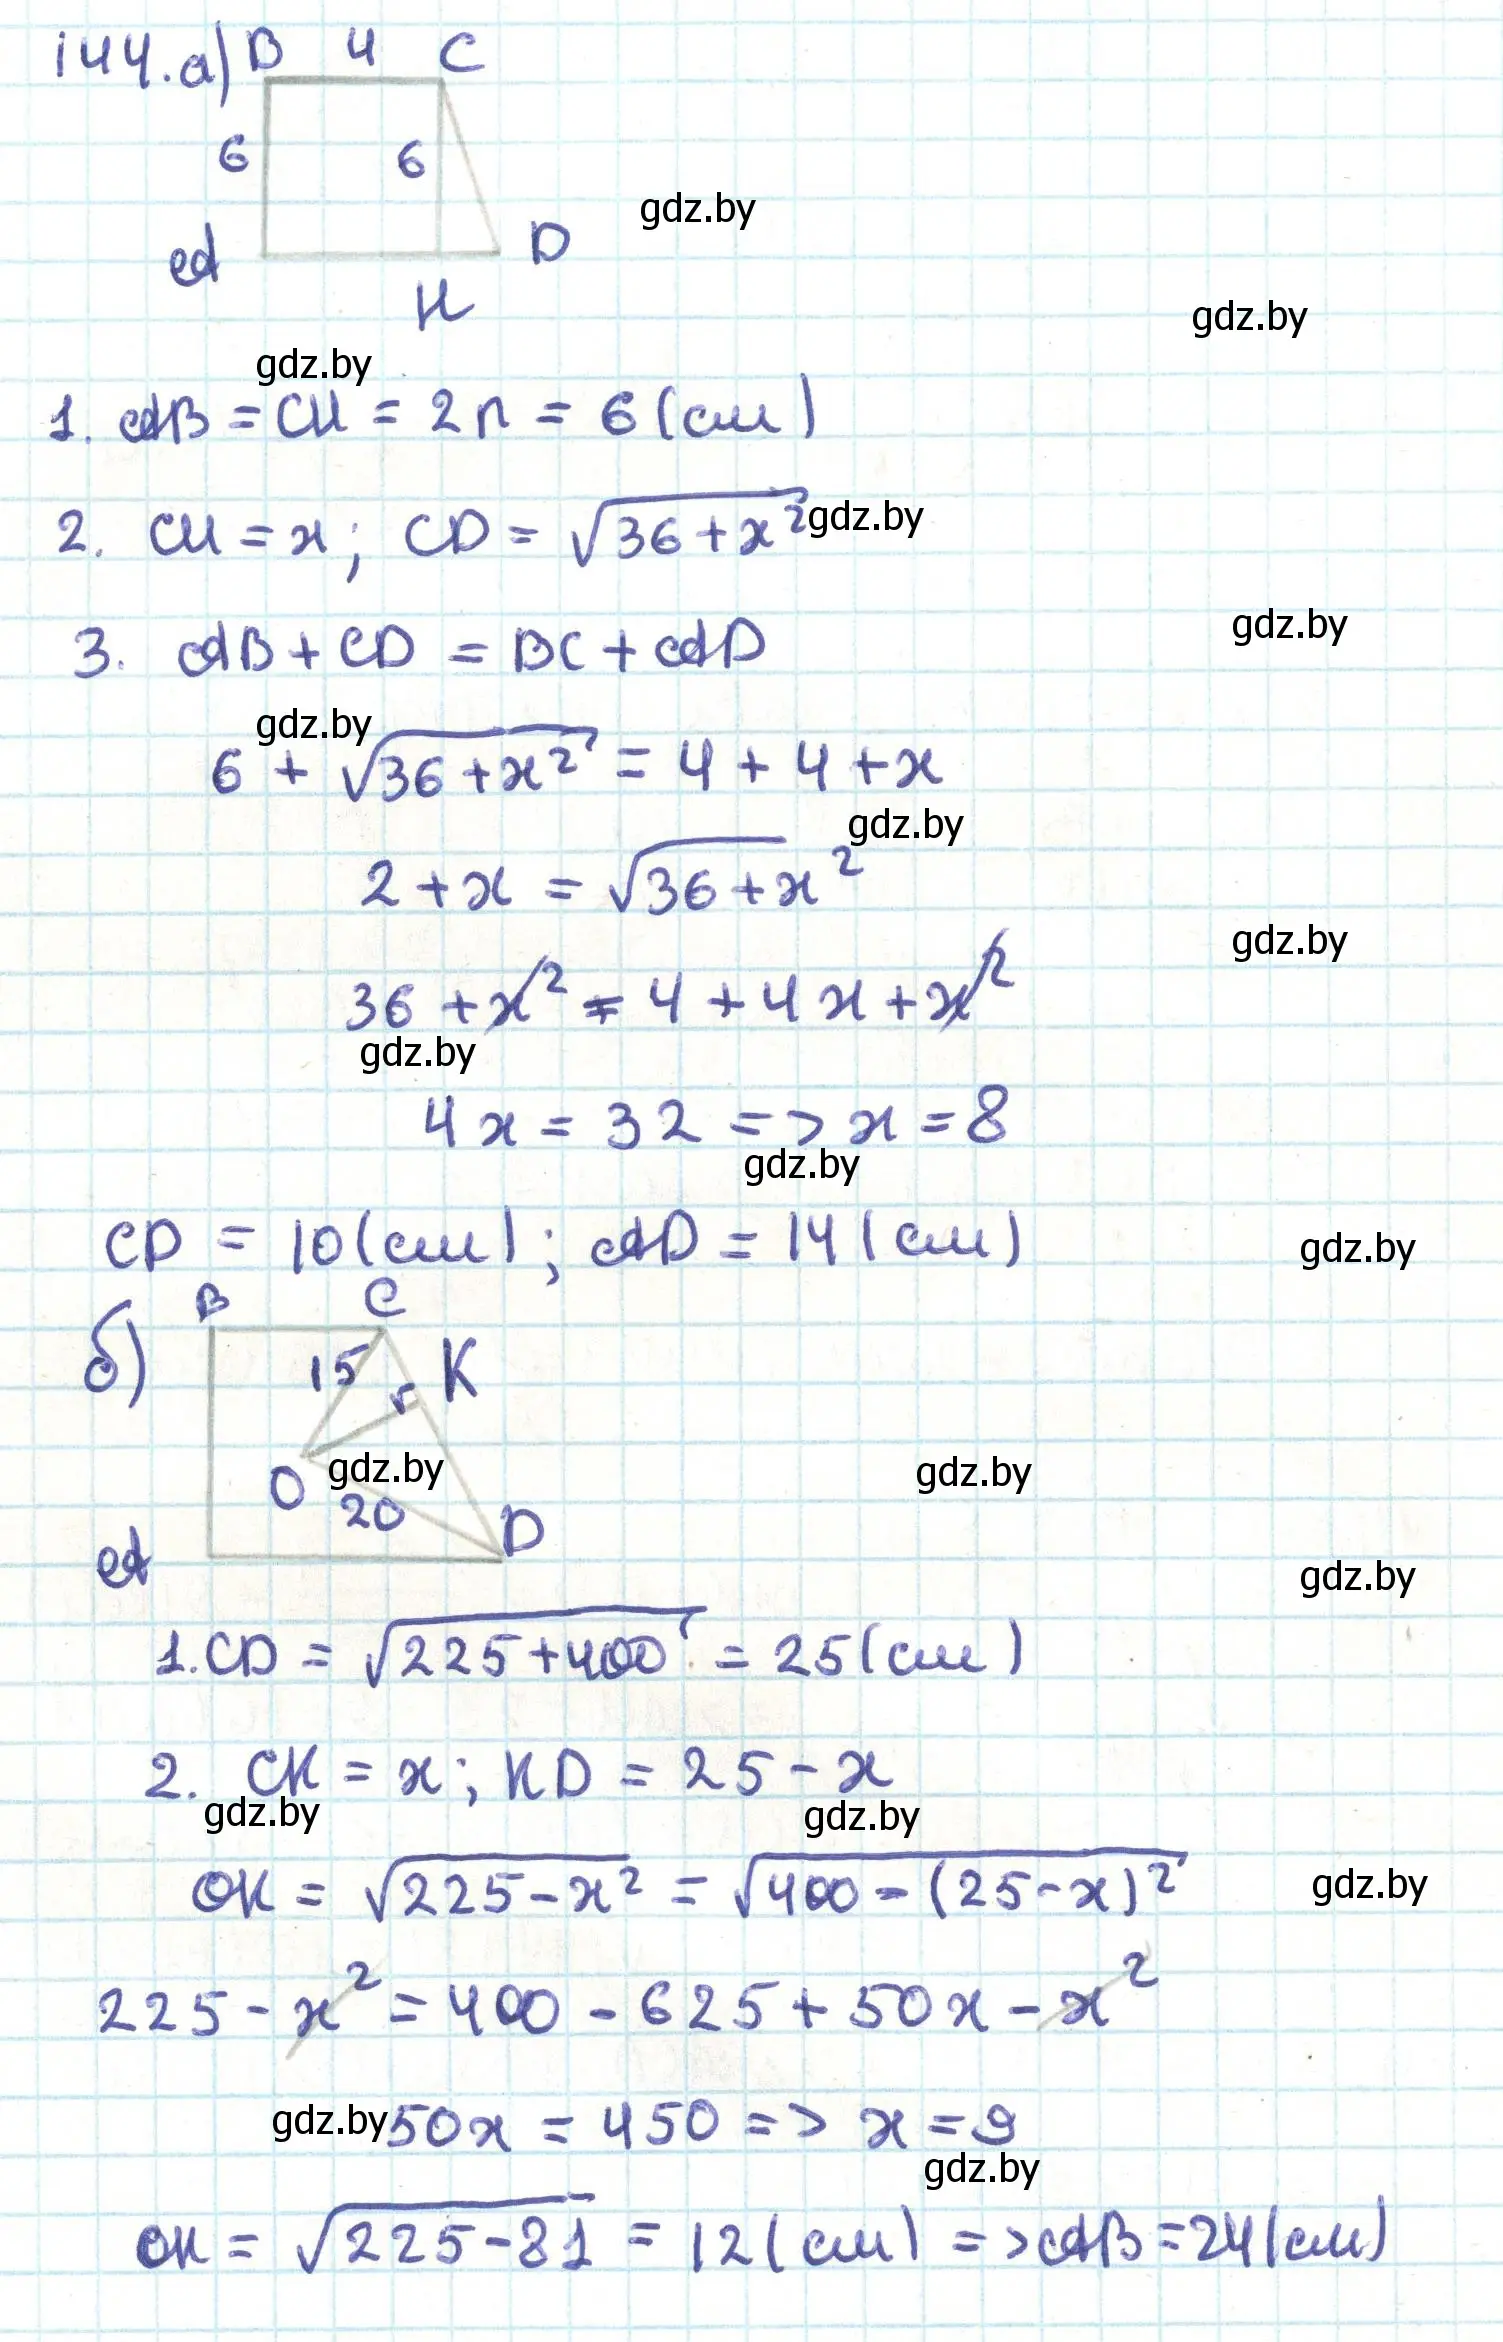 144. а) B 4 C
6 6
A D
H
gdz.by
gdz.by
gdz.by
1. AB = CH = 2r = 6 (см)
2. CH = x; CD = √36 + x²
gdz.by
gdz.by
3. AB + CD = BC + AD
gdz.by
6 + √36 + x² = 4 + 4 + x
gdz.by
2 + x = √36 + x²
gdz.by
36 + x² = 4 + 4x + x²
gdz.by
4x = 32 => x = 8
gdz.by
CD = 10 (см); AD = 14 (см)
gdz.by
б) B C
15 r K
O gdz.by gdz.by
20 D
A
gdz.by
1. CD = √225 + 400 = 25 (см)
2. CK = x; KD = 25 - x
gdz.by gdz.by
OK = √225 - x² = √400 - (25 - x)²
gdz.by
225 - x² = 400 - 625 + 50x - x²
gdz.by 50x = 450 => x = 9
gdz.by
OK = √225 - 81 = 12 (см) => AB = 24 (см)